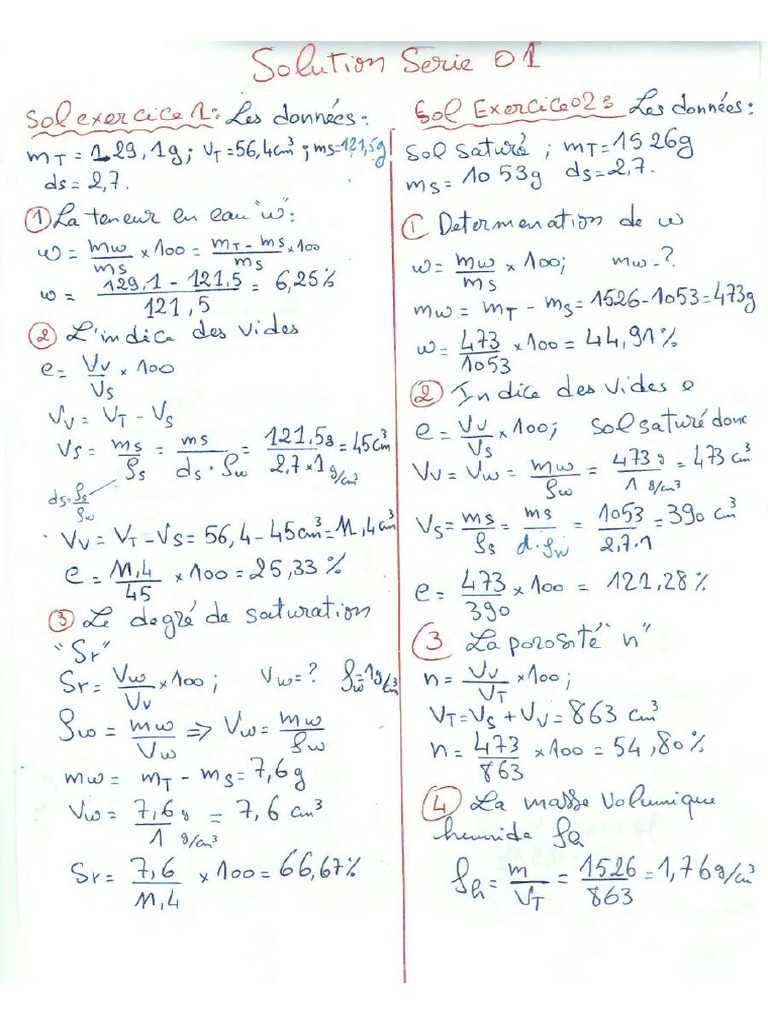 Solution Serie 01
Sol exercice 1: Les données:
mT = 129,1g ; VT = 56,4cm³ ; ms = 121,5g
ds = 2,7.
① La teneur en eau "w":
w = mw/ms × 100 = (mT - ms)/ms × 100
w = (129,1 - 121,5)/121,5 = 6,25%
② L'indice des vides
e = Vv/Vs × 100
Vv = VT - Vs
Vs = ms/ρs = ms/(ds · ρw) = 121,5g/(2,7 × 1 g/cm³) = 45cm³
ds = ρs/ρw
Vv = VT - Vs = 56,4 - 45cm³ = 11,4cm³
e = 11,4/45 × 100 = 25,33%
③ Le degré de saturation
"Sr"
Sr = Vw/Vv × 100 ; Vw = ? ρw = 1g/cm³
ρw = mw/Vw ⇒ Vw = mw/ρw
mw = mT - ms = 7,6g
Vw = 7,6 g/1 g/cm³ = 7,6 cm³
Sr = 7,6/11,4 × 100 = 66,67%
Sol Exercice 02: Les données:
Sol saturé ; mT = 1526g
ms = 1053g ds = 2,7.
① Determenation de w
w = mw/ms × 100; mw - ?
mw = mT - ms = 1526 - 1053 = 473g
w = 473/1053 × 100 = 44,91%
② Indice des vides e
e = Vv/Vs × 100; sol saturé donc
Vv = Vw = mw/ρw = 473 g/1 g/cm³ = 473 cm³
Vs = ms/ρs = ms/(d · ρw) = 1053/(2,7 · 1) = 390 cm³
e = 473/390 × 100 = 121,28%
③ La porosité "n"
n = Vv/VT × 100;
VT = Vs + Vv = 863 cm³
n = 473/863 × 100 = 54,80%
④ La masse volumique
humide ρh
ρh = m/VT = 1526/863 = 1,76g/cm³